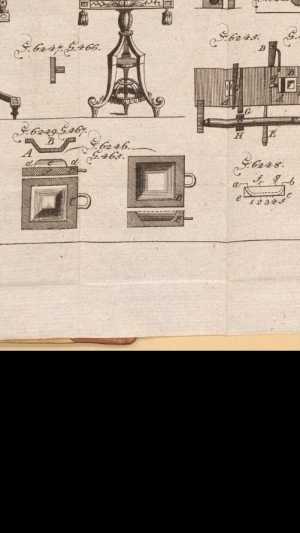 F. 6247. G. 466.
F. 6245. G.
B
G
H
E
F. 6249. G. 467.
B
A
F. 6246.
G. 465.
d
d
F. 6248.
a f g b
e c
1 2 3 4 5